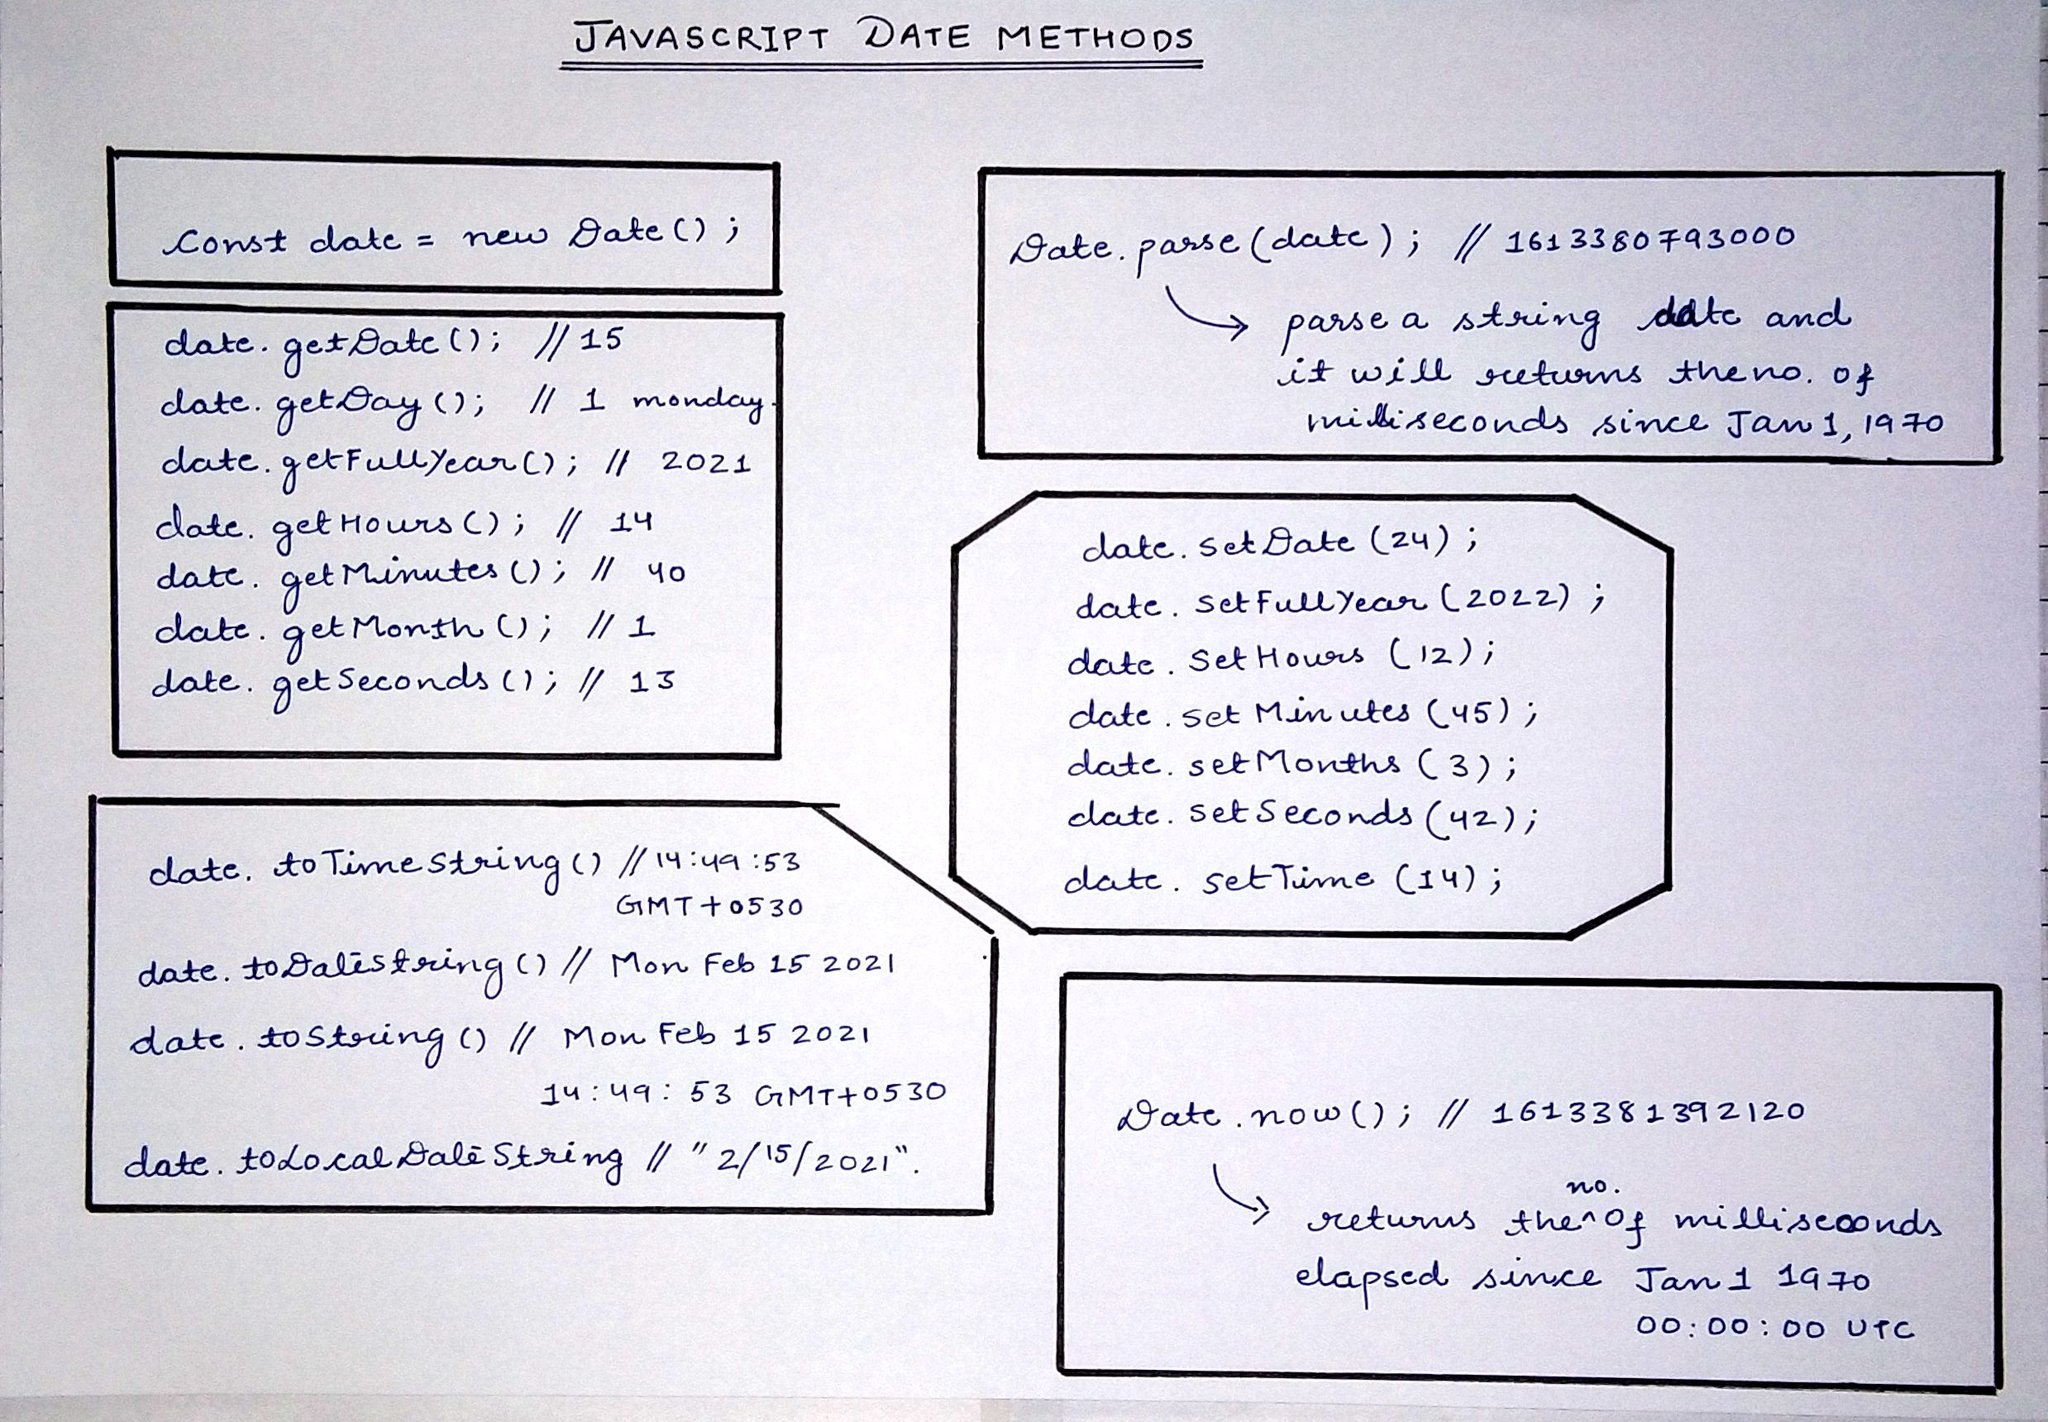 JAVASCRIPT DATE METHODS
Const date = new Date();
date.getDate(); // 15
date.getDay(); // 1 monday.
date.getFullYear(); // 2021
date.getHours(); // 14
date.getMinutes(); // 40
date.getMonth(); // 1
date.getSeconds(); // 13
date.toTimeString() // 14:49:53
GMT+0530
date.toDateString() // Mon Feb 15 2021
date.toString() // Mon Feb 15 2021
14:49:53 GMT+0530
date.toLocalDateString // "2/15/2021".
Date.parse(date); // 1613380793000
parse a string date and
it will returns the no. of
milliseconds since Jan 1, 1970
date.setDate(24);
date.setFullYear(2022);
date.setHours(12);
date.setMinutes(45);
date.setMonths(3);
date.setSeconds(42);
date.setTime(14);
Date.now(); // 1613381392120
returns the no. of milliseconds
elapsed since Jan 1 1970
00:00:00 UTC